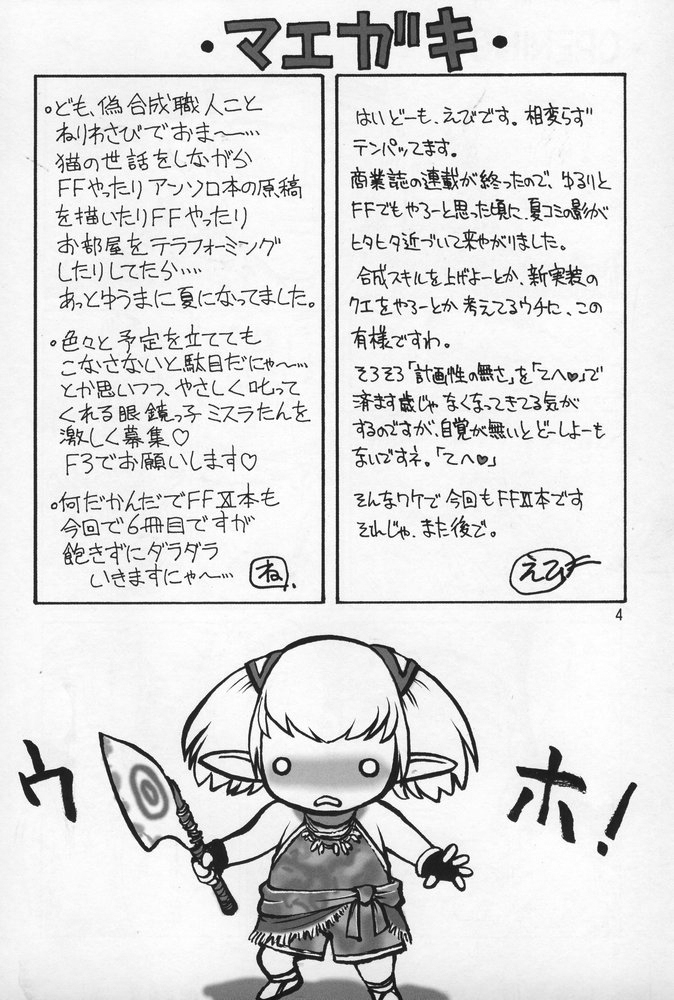 ・マエガキ・
・ども、偽合成職人こと
ねりわさびでおま〜…
猫の世話をしながら
FFやったり アンソロ本の原稿
を描いたりFFやったり
お部屋をテラフォーミング
したりしてたら‥‥
あっとゆうまに夏になってました。
・色々と予定を立てても
こなさないと駄目だにゃ〜…
とか思いつつ、やさしく叱って
くれる眼鏡っ子 ミスラたんを
激しく募集♡
F3でお願いします♡
・何だかんだでFFⅪ本も
今回で6冊目ですが
飽きずにダラダラ
いきますにゃ〜…
ね
はいどーも、えびです。相変らず
テンパッてます。
商業誌の連載が終ったので、ゆるりと
FFでもやろーと思った頃に、夏コミの影が
ヒタヒタ近づいて来やがりました。
合成スキルを上げよーとか、新実装の
クエをやろーとか 考えてるウチに、この
有様ですわ。
そろそろ「計画性の無さ」を「てへ♥」で
済ます歳じゃ なくなってきてる気が
するのですが、自覚が無いとどーしよーも
ないですネ。「てへ♥」
そんなワケで今回もFFⅪ本です
それじゃ、また後で。
えび
4
ウ
ホ!